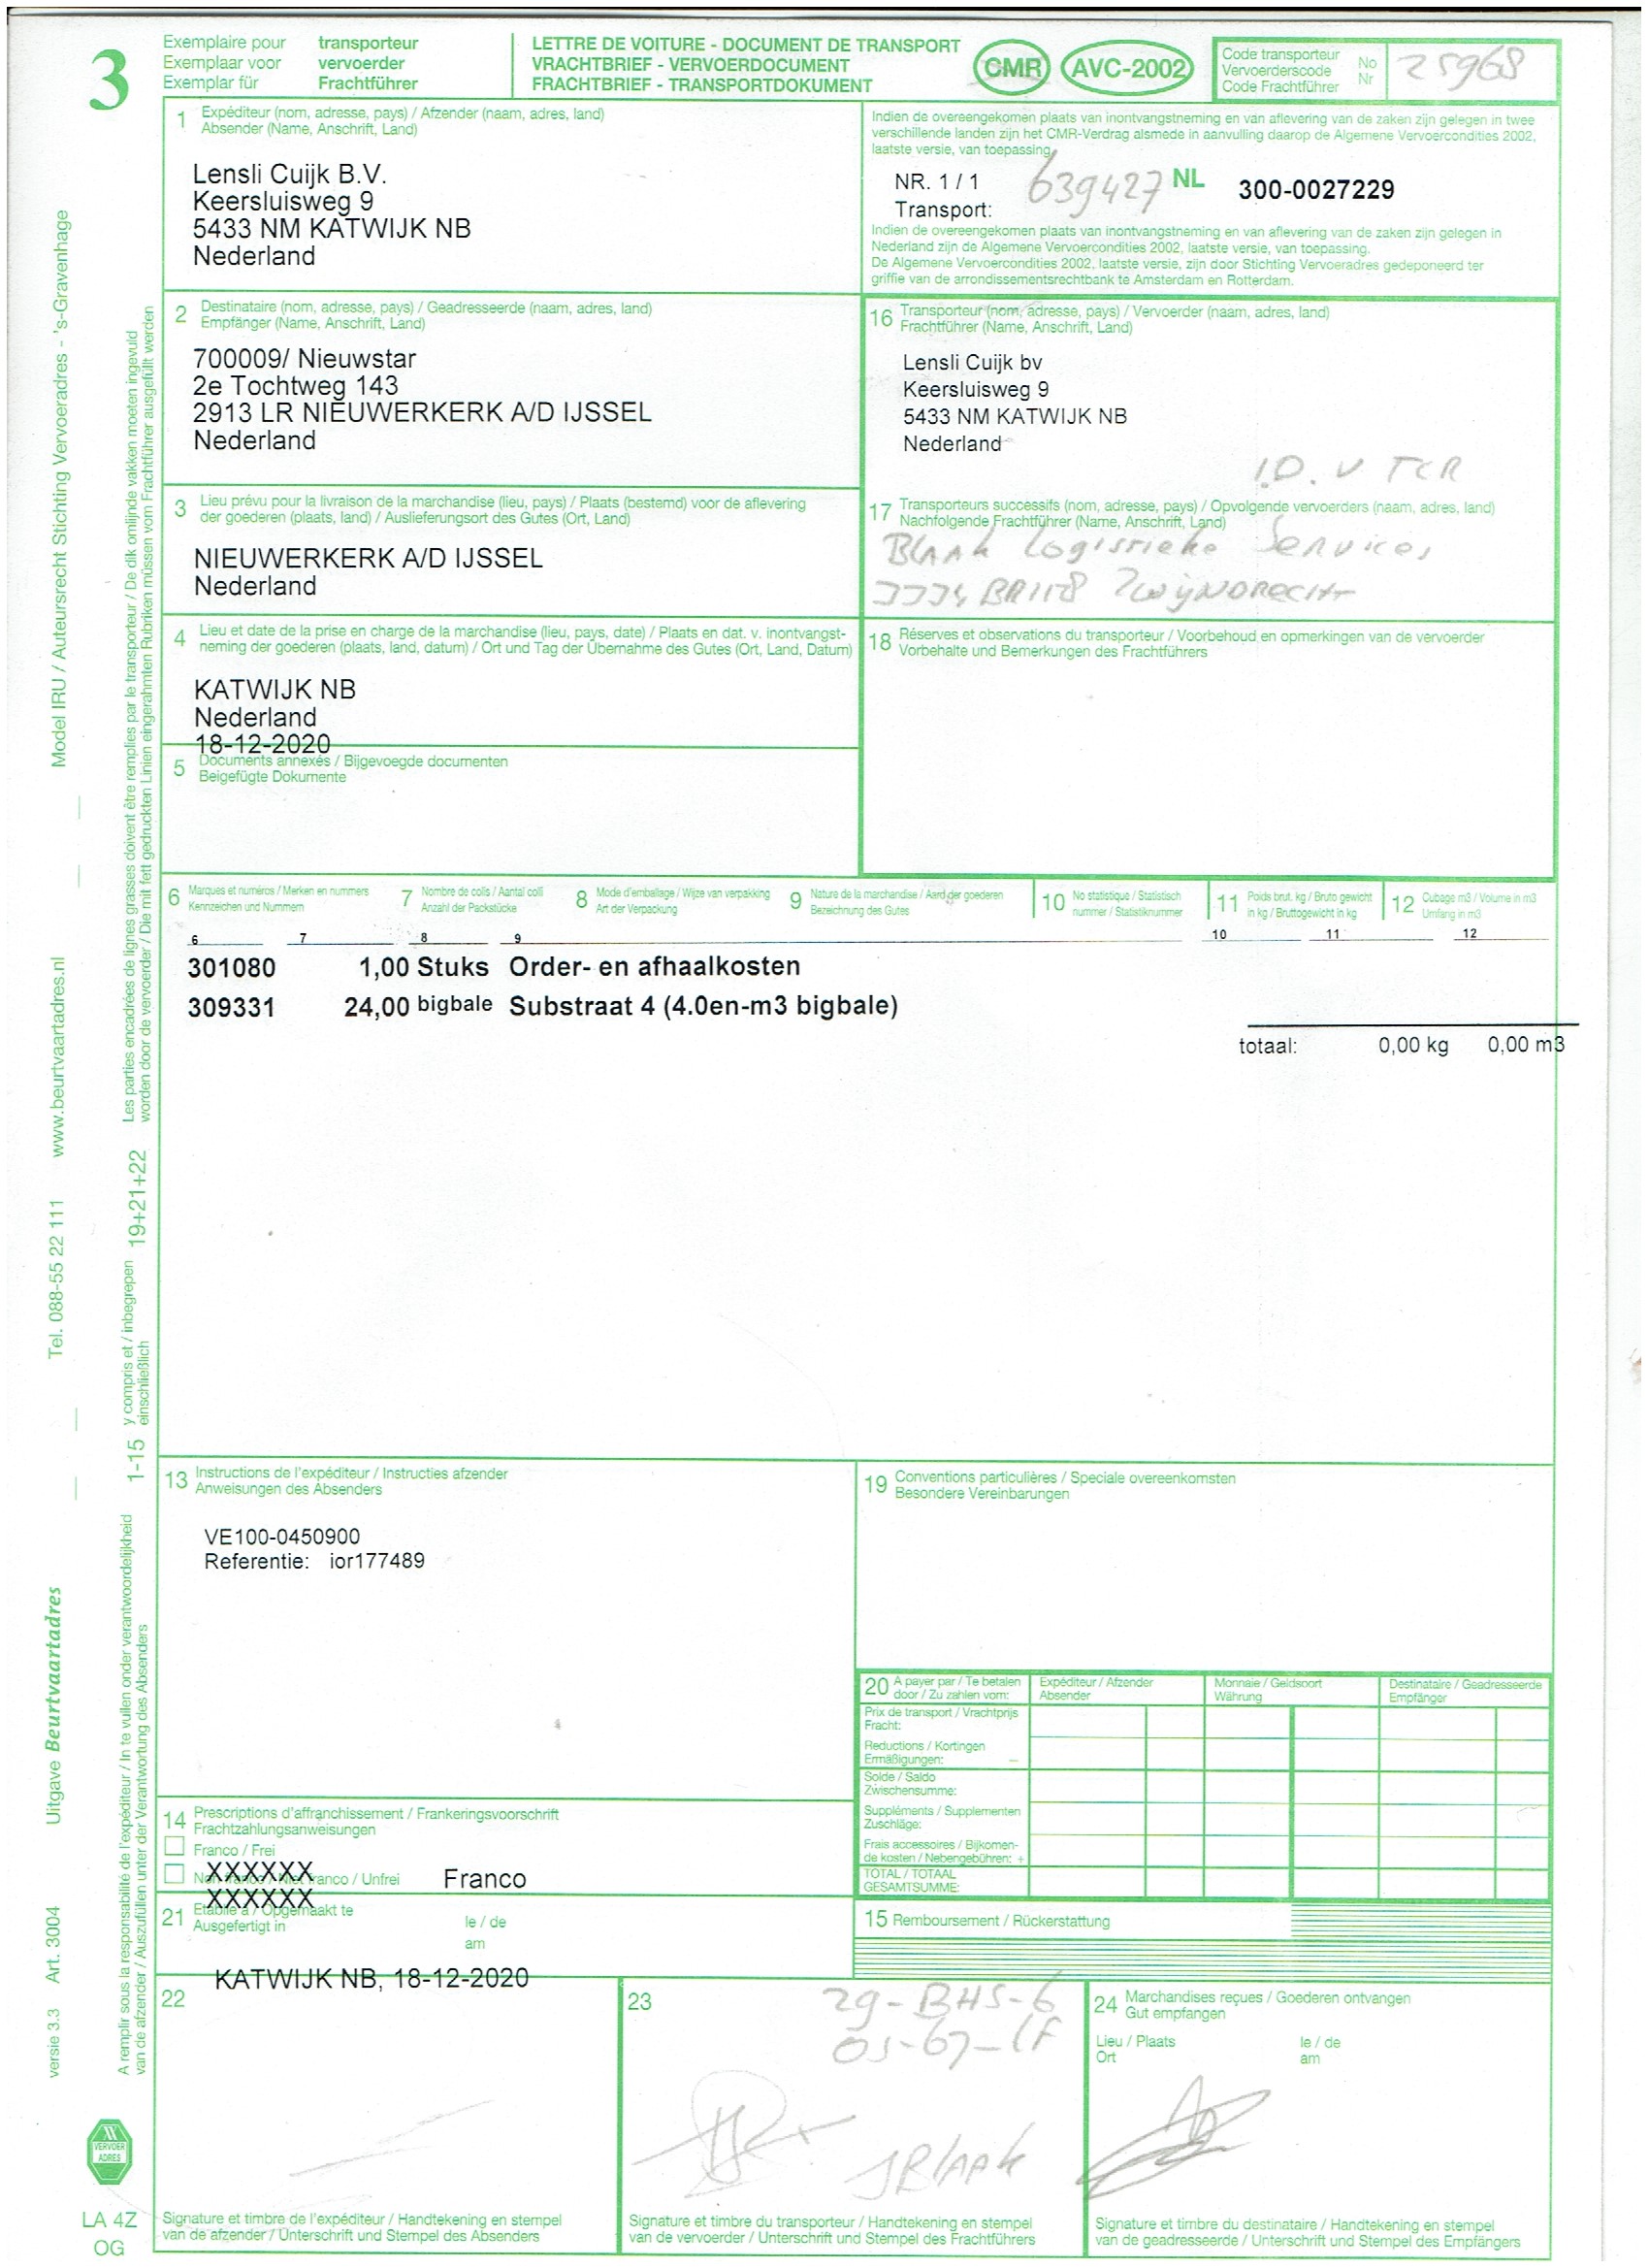 3
Exemplaire pour transporteur
Exemplaar voor vervoerder
Exemplar für Frachtführer
LETTRE DE VOITURE - DOCUMENT DE TRANSPORT
VRACHTBRIEF - VERVOERDOCUMENT
FRACHTBRIEF - TRANSPORTDOKUMENT
CMR AVC-2002
Code transporteur
Vervoerderscode
Code Frachtführer
No
Nr
25968
1 Expéditeur (nom, adresse, pays) / Afzender (naam, adres, land)
Absender (Name, Anschrift, Land)
Lensli Cuijk B.V.
Keersluisweg 9
5433 NM KATWIJK NB
Nederland
Indien de overeengekomen plaats van inontvangstneming en van aflevering van de zaken zijn gelegen in twee
verschillende landen zijn het CMR-Verdrag alsmede in aanvulling daarop de Algemene Vervoercondities 2002,
laatste versie, van toepassing.
NR. 1 / 1 639427 NL 300-0027229
Transport:
Indien de overeengekomen plaats van inontvangstneming en van aflevering van de zaken zijn gelegen in
Nederland zijn de Algemene Vervoercondities 2002, laatste versie, van toepassing.
De Algemene Vervoercondities 2002, laatste versie, zijn door Stichting Vervoeradres gedeponeerd ter
griffie van de arrondissementsrechtbank te Amsterdam en Rotterdam.
2 Destinataire (nom, adresse, pays) / Geadresseerde (naam, adres, land)
Empfänger (Name, Anschrift, Land)
700009/ Nieuwstar
2e Tochtweg 143
2913 LR NIEUWERKERK A/D IJSSEL
Nederland
16 Transporteur (nom, adresse, pays) / Vervoerder (naam, adres, land)
Frachtführer (Name, Anschrift, Land)
Lensli Cuijk bv
Keersluisweg 9
5433 NM KATWIJK NB
Nederland
I.D. V TCR
3 Lieu prévu pour la livraison de la marchandise (lieu, pays) / Plaats (bestemd) voor de aflevering
der goederen (plaats, land) / Auslieferungsort des Gutes (Ort, Land)
NIEUWERKERK A/D IJSSEL
Nederland
17 Transporteurs successifs (nom, adresse, pays) / Opvolgende vervoerders (naam, adres, land)
Nachfolgende Frachtführer (Name, Anschrift, Land)
Blaak Logistieke Services
Zwijndrecht
4 Lieu et date de la prise en charge de la marchandise (lieu, pays, date) / Plaats en dat. v. inontvangst-
neming der goederen (plaats, land, datum) / Ort und Tag der Übernahme des Gutes (Ort, Land, Datum)
KATWIJK NB
Nederland
18-12-2020
18 Réserves et observations du transporteur / Voorbehoud en opmerkingen van de vervoerder
Vorbehalte und Bemerkungen des Frachtführers
5 Documents annexés / Bijgevoegde documenten
Beigefügte Dokumente
6 Marques et numéros / Merken en nummers
Kennzeichen und Nummern
7 Nombre de colis / Aantal colli
Anzahl der Packstücke
8 Mode d'emballage / Wijze van verpakking
Art der Verpackung
9 Nature de la marchandise / Aard der goederen
Bezeichnung des Gutes
10 No statistique / Statistisch
nummer / Statistiknummer
11 Poids brut. kg / Bruto gewicht
in kg / Bruttogewicht in kg
12 Cubage m3 / Volume in m3
Umfang in m3
6 7 8 9 10 11 12
301080 1,00 Stuks Order- en afhaalkosten
309331 24,00 bigbale Substraat 4 (4.0en-m3 bigbale)
totaal: 0,00 kg 0,00 m3
13 Instructions de l'expéditeur / Instructies afzender
Anweisungen des Absenders
VE100-0450900
Referentie: ior177489
19 Conventions particulières / Speciale overeenkomsten
Besondere Vereinbarungen
20 A payer par / Te betalen
door / Zu zahlen vom:
Expéditeur / Afzender
Absender
Monnaie / Geldsoort
Währung
Destinataire / Geadresseerde
Empfänger
Prix de transport / Vrachtprijs
Fracht:
Reductions / Kortingen
Ermäßigungen: –
Solde / Saldo
Zwischensumme:
Suppléments / Supplementen
Zuschläge:
Frais accessoires / Bijkomen-
de kosten / Nebengebühren: +
TOTAL / TOTAAL
GESAMTSUMME:
14 Prescriptions d'affranchissement / Frankeringsvoorschrift
Frachtzahlungsanweisungen
Franco / Frei
XXXXXX
Non franco / Niet franco / Unfrei Franco
XXXXXX
21 Etablie à / Opgemaakt te
Ausgefertigt in
le / de
am
KATWIJK NB, 18-12-2020
15 Remboursement / Rückerstattung
22
Signature et timbre de l'expéditeur / Handtekening en stempel
van de afzender / Unterschrift und Stempel des Absenders
23
29-BHS-6
JBlaak
Signature et timbre du transporteur / Handtekening en stempel
van de vervoerder / Unterschrift und Stempel des Frachtführers
24 Marchandises reçues / Goederen ontvangen
Gut empfangen
Lieu / Plaats
Ort
le / de
am
Signature et timbre du destinataire / Handtekening en stempel
van de geadresseerde / Unterschrift und Stempel des Empfängers
Model IRU / Auteursrecht Stichting Vervoeradres - 's-Gravenhage
www.beurtvaartadres.nl
Tel. 088-55 22 111
Uitgave Beurtvaartadres
Art. 3004
versie 3.3
Les parties encadrées de lignes grasses doivent être remplies par le transporteur / De dik omlijnde vakken moeten ingevuld
worden door de vervoerder / Die mit fett gedruckten Linien eingerahmten Rubriken müssen vom Frachtführer ausgefüllt werden
19+21+22
y compris et / inbegrepen
einschließlich
1-15
A remplir sous la responsabilité de l'expéditeur / In te vullen onder verantwoordelijkheid
van de afzender / Auszufüllen unter der Verantwortung des Absenders
VERVOER
ADRES
LA 4Z
OG